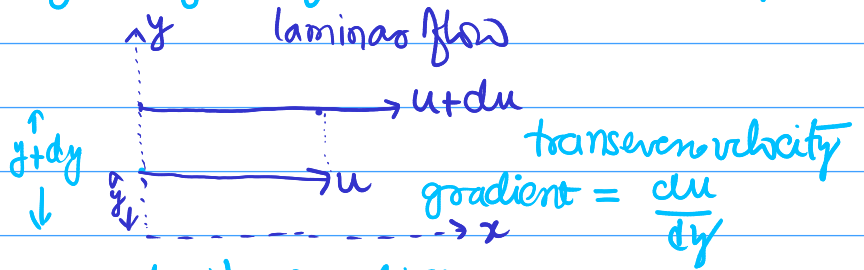 y
laminar flow
u+du
y+dy
transevene velocity
u
y
gradient = du/dy
x